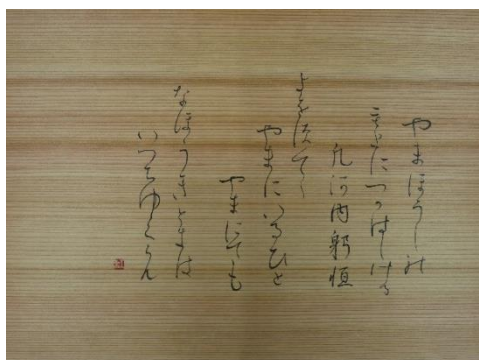 やまほうしの
もとにつかはしける
凡河内躬恒
よをすてて
やまにいるひと
やまにても
なほうきときは
いつちゆくらん